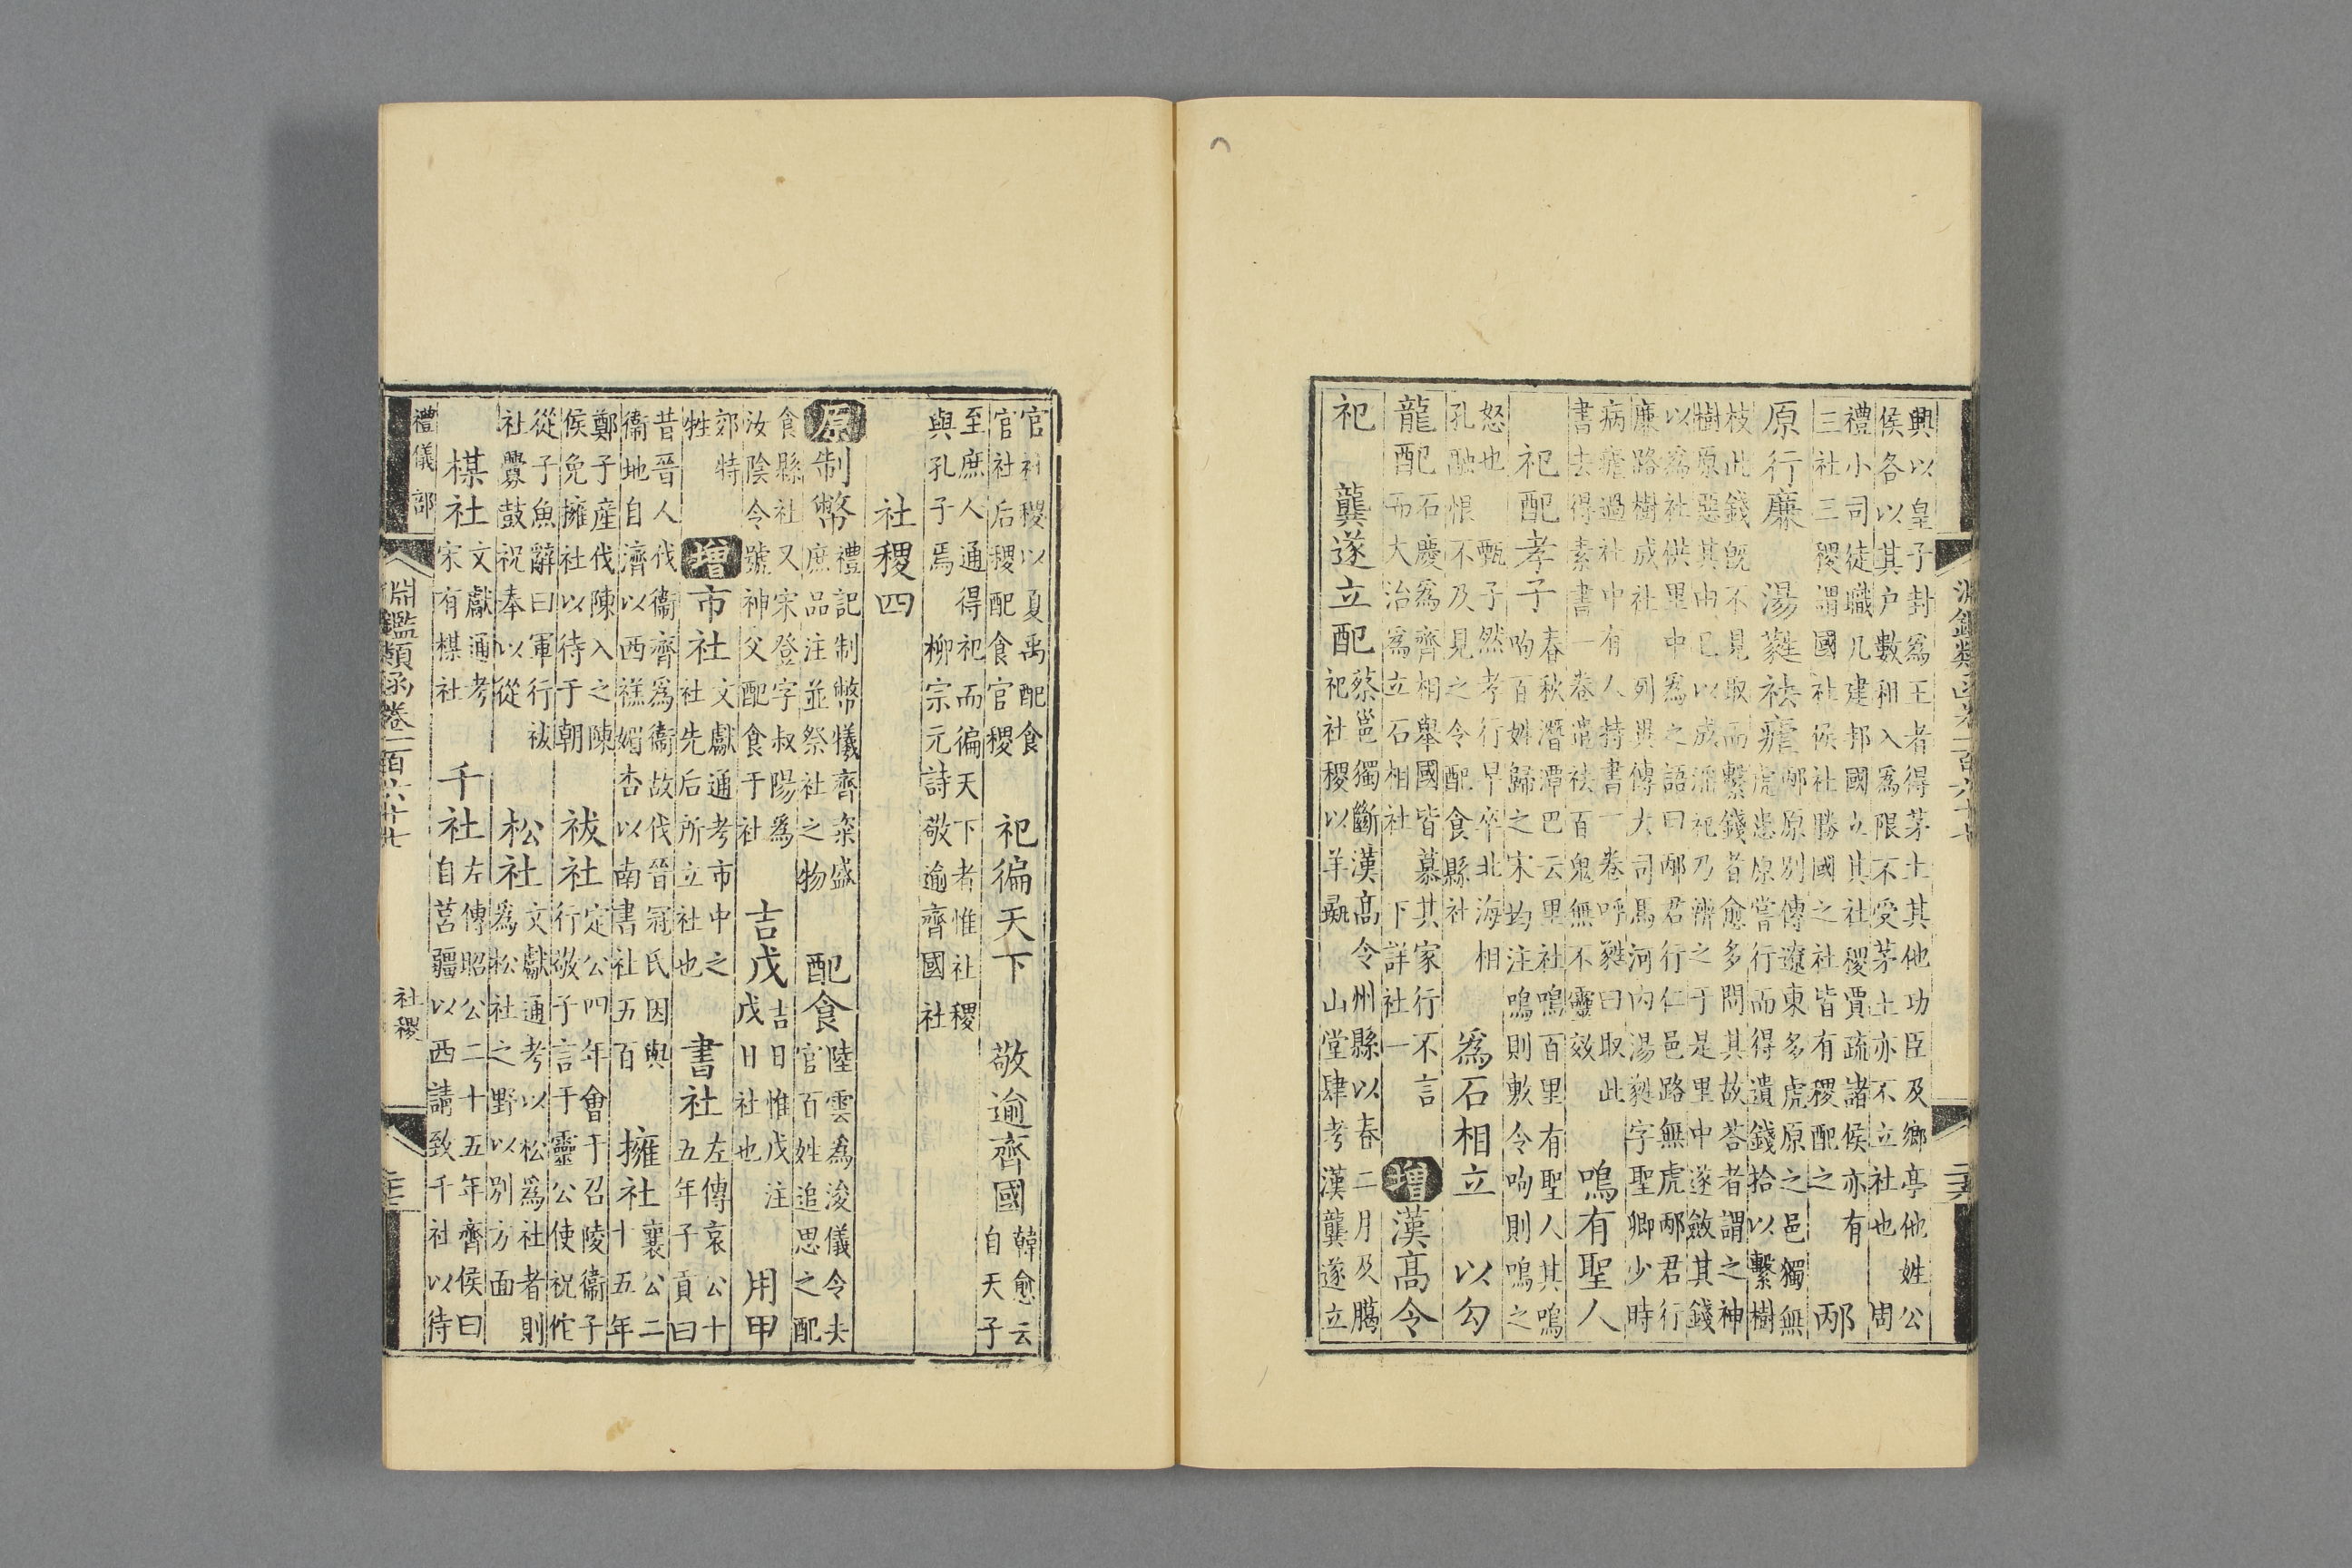 淵鑑類函卷一百六十七
二六
興以皇子封為王者得茅土其他功臣及鄉亭他姓公
侯各以其户數租入為限不受茅土亦不立社也 周
禮小司徒職凡建邦國立其社稷賈疏諸侯亦有
三社三稷謂國社侯社勝國之社皆有稷配之 邴
原行廉 湯蕤祛瘧 邴原別傳遼東多虎原之邑獨無
虎患原嘗行而得遺錢拾以繫樹
枝此錢既不見取而繫錢者愈多問其故荅者謂之神
樹原惡其由已以成淫祀乃辨之于是里中遂斂其錢
以為社供里中為之語曰邴君行仁邑路無虎邴君行
廉路樹成社 列異傳大司馬河内湯蕤字聖卿少時
病瘧過社中有人持書一卷呼蕤曰取此
書去得素書一卷譴祛百鬼無不靈效 鳴有聖人
祀配孝子 春秋潛潭巴云里社鳴百里有聖人其鳴
呴百姓歸之宋均注鳴則敷令呴則鳴之
怒也 甄子然孝行早卒北海相
孔融恨不及見之令配食縣社 為石相立 以勾
龍配 石慶為齊相舉國皆慕其家行不言
而大治為立石相社 下詳社一 增 漢高令
祀 龔遂立配 蔡邕獨斷漢高令州縣以春二月及臈
祀社稷以羊彘 山堂肆考漢龔遂立
官社稷以夏禹配食
官社后稷配食官稷 祀徧天下 敬逾齊國 韓愈云
自天子
至庶人通得祀而徧天下者惟社稷
與孔子焉 柳宗元詩敬逾齊國社
社稷四
原 制幣 禮記制幣犧齊粢盛
庶品注並祭社之物 配食 陸雲為浚儀令夫
官百姓追思之配
食縣社又宋登字叔陽為
汝陰令號神父配食于社 吉戊 吉日惟戊注
戊日社也 用甲
郊特
牲 增 市社 文獻通考市中之
社先后所立社也 書社 左傳哀公十
五年子貢曰
昔晉人伐衞齊為衞故伐晉冠氏因與
衞地自濟以西禚媚杏以南書社五百 擁社 襄公二
十五年
鄭子產伐陳入之陳
侯免擁社以待于朝 祓社 定公四年會于召陵衞子
行敬子言于靈公使祝佗
從子魚辭曰軍行祓
社釁鼓祝奉以從 松社 文獻通考以松為社者則
為松社之野以別方面
棋社 文獻通考
宋有棋社 千社 左傳昭公二十五年齊侯曰
自莒疆以西請致千社以待
禮儀部
淵鑑類函卷一百六十七
社稷